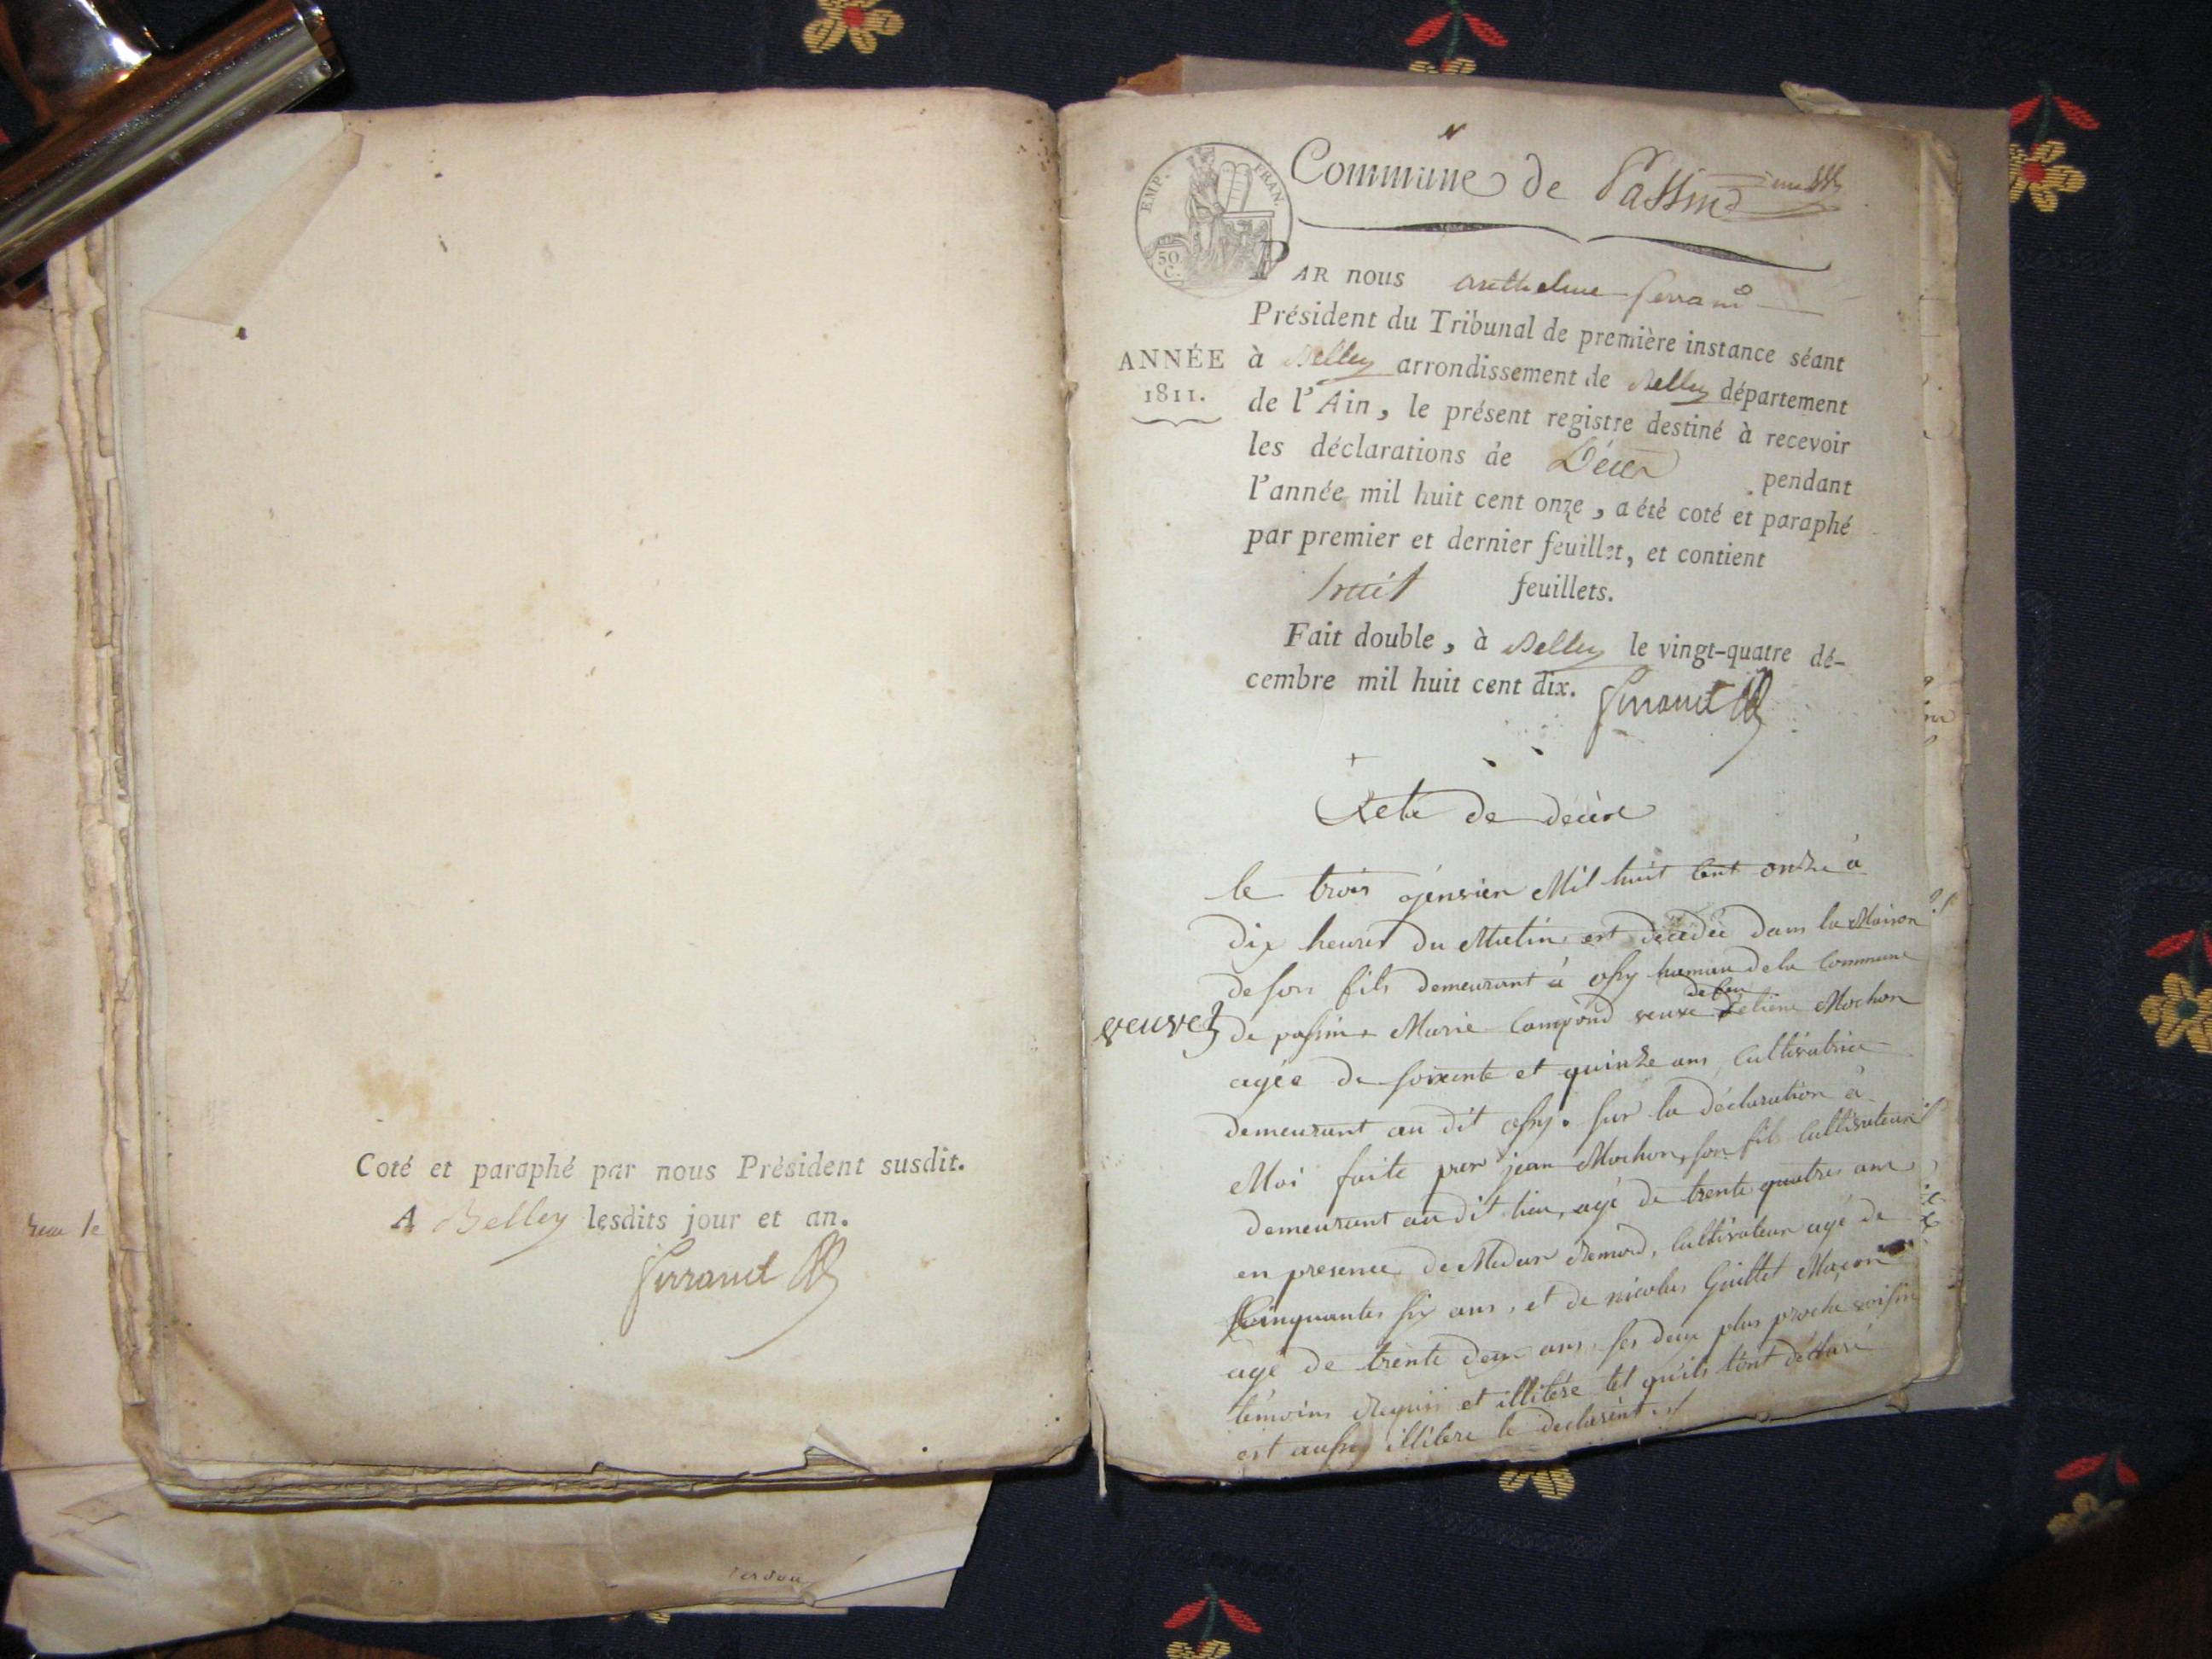 Coté et paraphé par nous Président susdit.
A Belley lesdits jour et an.
Ferrand
EMP. FRAN.
50 C.
Commune de Passin
PAR nous anthelme ferrand
Président du Tribunal de première instance séant
ANNÉE
1811.
à Belley arrondissement de Belley département
de l'Ain, le présent registre destiné à recevoir
les déclarations de Décès pendant
l'année mil huit cent onze, a été coté et paraphé
par premier et dernier feuillet, et contient
huit feuillets.
Fait double, à Belley le vingt-quatre dé-
cembre mil huit cent dix. Ferrand
Acte de décès
le trois jenvier Mil huit Cent onze à
dix heures du Matin est décédée dans la Maison
de son fils demeurant à ossy hameau de la Commune
de feu
veuve
de passin Marie Compond veuve Mochon
agée de soixente et quinze ans Cultivatrice
demeurant au dit ossy. sur la déclaration à
Moi faite par jean Mochon, son fils Cultivateur
demeurant au dit lieu, agé de trente quatres ans
en presence de Remond, Cultivateur agé de
Cinquantes six ans, et de nicolas Guillet Maçon
agé de trente deux ans, ses deux plus proche voisin
témoins Requis et illitére tel qu'ils l'ont déclaré
est aussy illitere le declarent